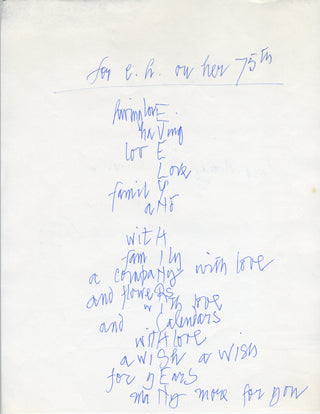 for e. h. on her 75th
livinglovE.
haVing
lovE
Love
familY
aNd
witH
famIly
a compaNy with love
and floweRs
wIth love
and Calendars
witH love
a wiSh a wish
for yEars
maNy more for you